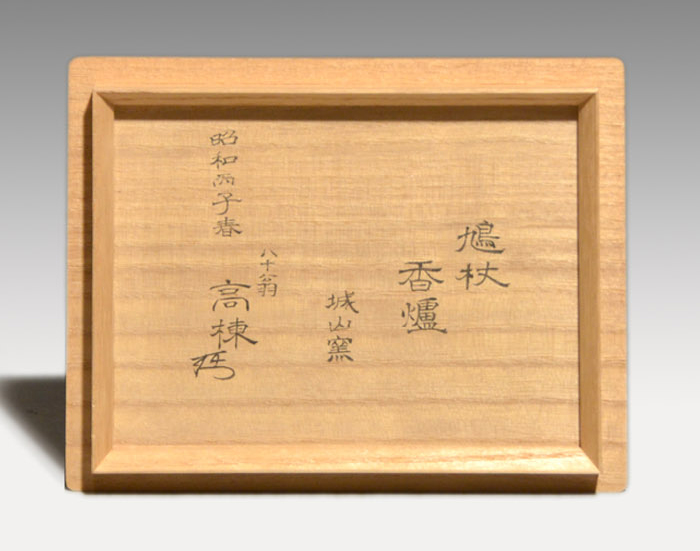 鳩杖
香爐
城山窯
八十翁
高棟
昭和丙子春